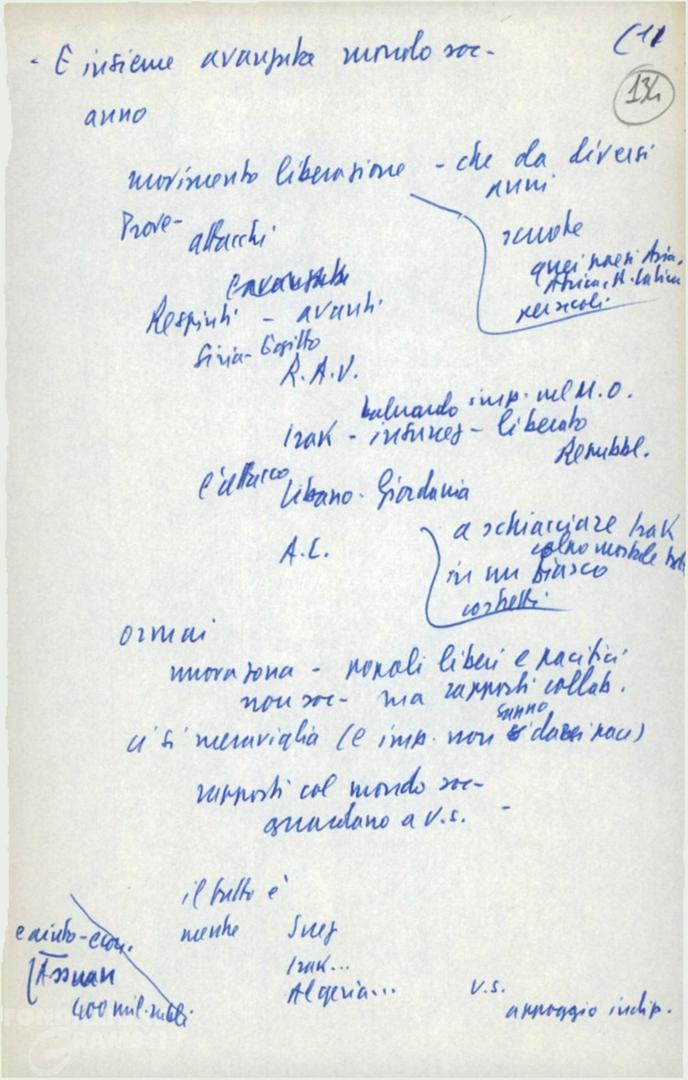 - E insieme avanzata mondo soc-
(11
134
anno
movimento liberazione - che da diversi
anni
scuote
quei paesi Asia.
Africa. A. Latina
nei secoli.
Prove-
attacchi
e avanzata
Respinti - avanti
Siria - Egitto
R.A.U.
baluardo imp. nel M.O.
Irak - - liberato
Repubbl.
e attacco
Libano - Giordania
a schiacciare Irak
colpo mortale
in un fiasco
costretti
A.L.
ormai
nuova zona - popoli liberi e pacifici
non soc- ma rapporti collab.
ci si meraviglia (e imp. non sanno darsi pace)
rapporti col mondo soc-
guardano a U.S. -
il tutto è
mentre Suez
Irak...
Algeria...
U.S.
appoggio indip.
e aiuto - econ.
[Assuan
400 mil. rubli
FONDAZIONE
GRAMSCI